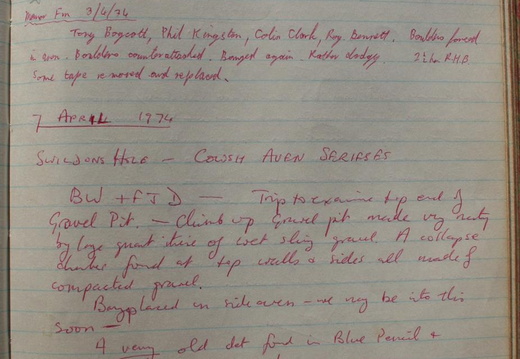 Fri 3/4/74
Tony Boycott, Phil Kingston, Colin Clark, Roy Bennett. Boulders forced
in aven. Boulders counterattacked. Banged again. Rather dodgy. 2½ hr RHB
Some tape removed and replaced.
7 APRIL 1974
SWILDONS HOLE — COWSH AVEN SERIESES
BW + FJD — Trip to examine top end of
Gravel Pit. — Climb up gravel pit made very nasty
by large quantities of wet slimy gravel. A collapse
chamber found at top walls & sides all made of
compacted gravel.
Bang placed in side aven — we may be into this
soon —
A very old det found in Blue Pencil &